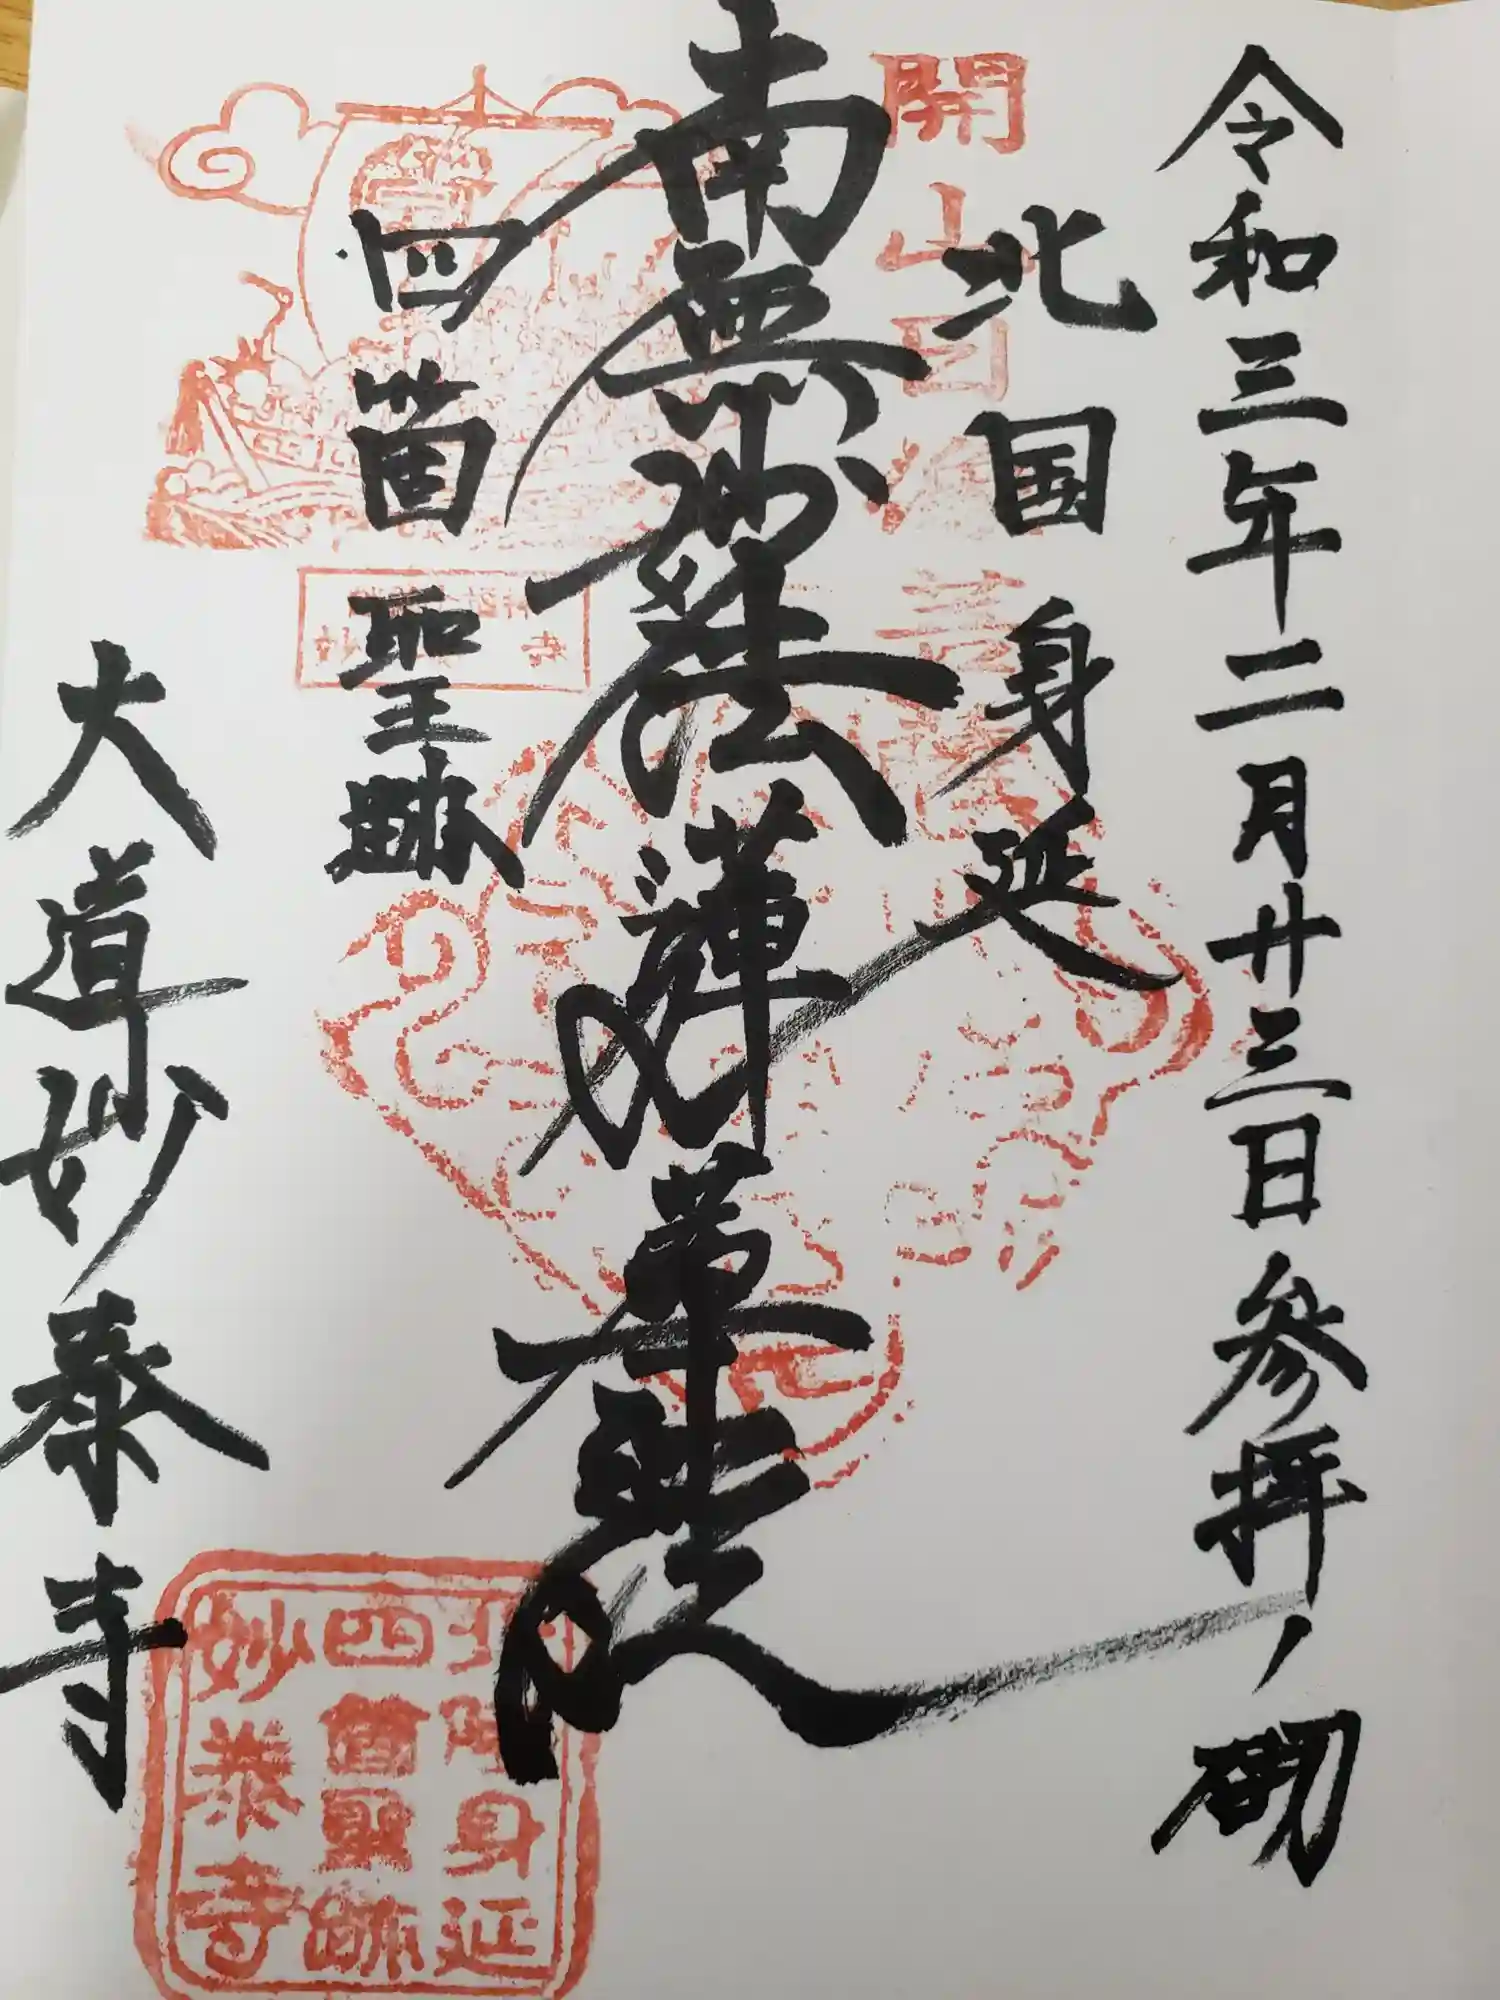 令和三年二月廿三日参拝ノ砌
開山日
北国身延
南無妙法蓮華経
四箇聖跡
大道妙泰寺
身延
四箇聖跡
妙泰寺